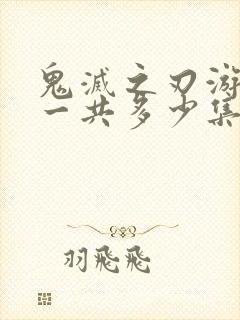 鬼滅之刃游
一共多少集
羽飛飛